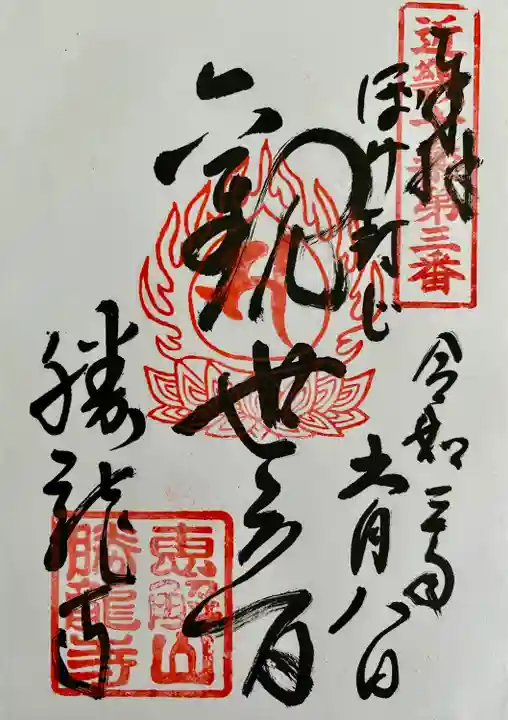 奉拝
近畿十楽第三番
ぼけ封じ
令和三年
十一月八日
六観世音
勝龍寺
恵解山
勝龍寺